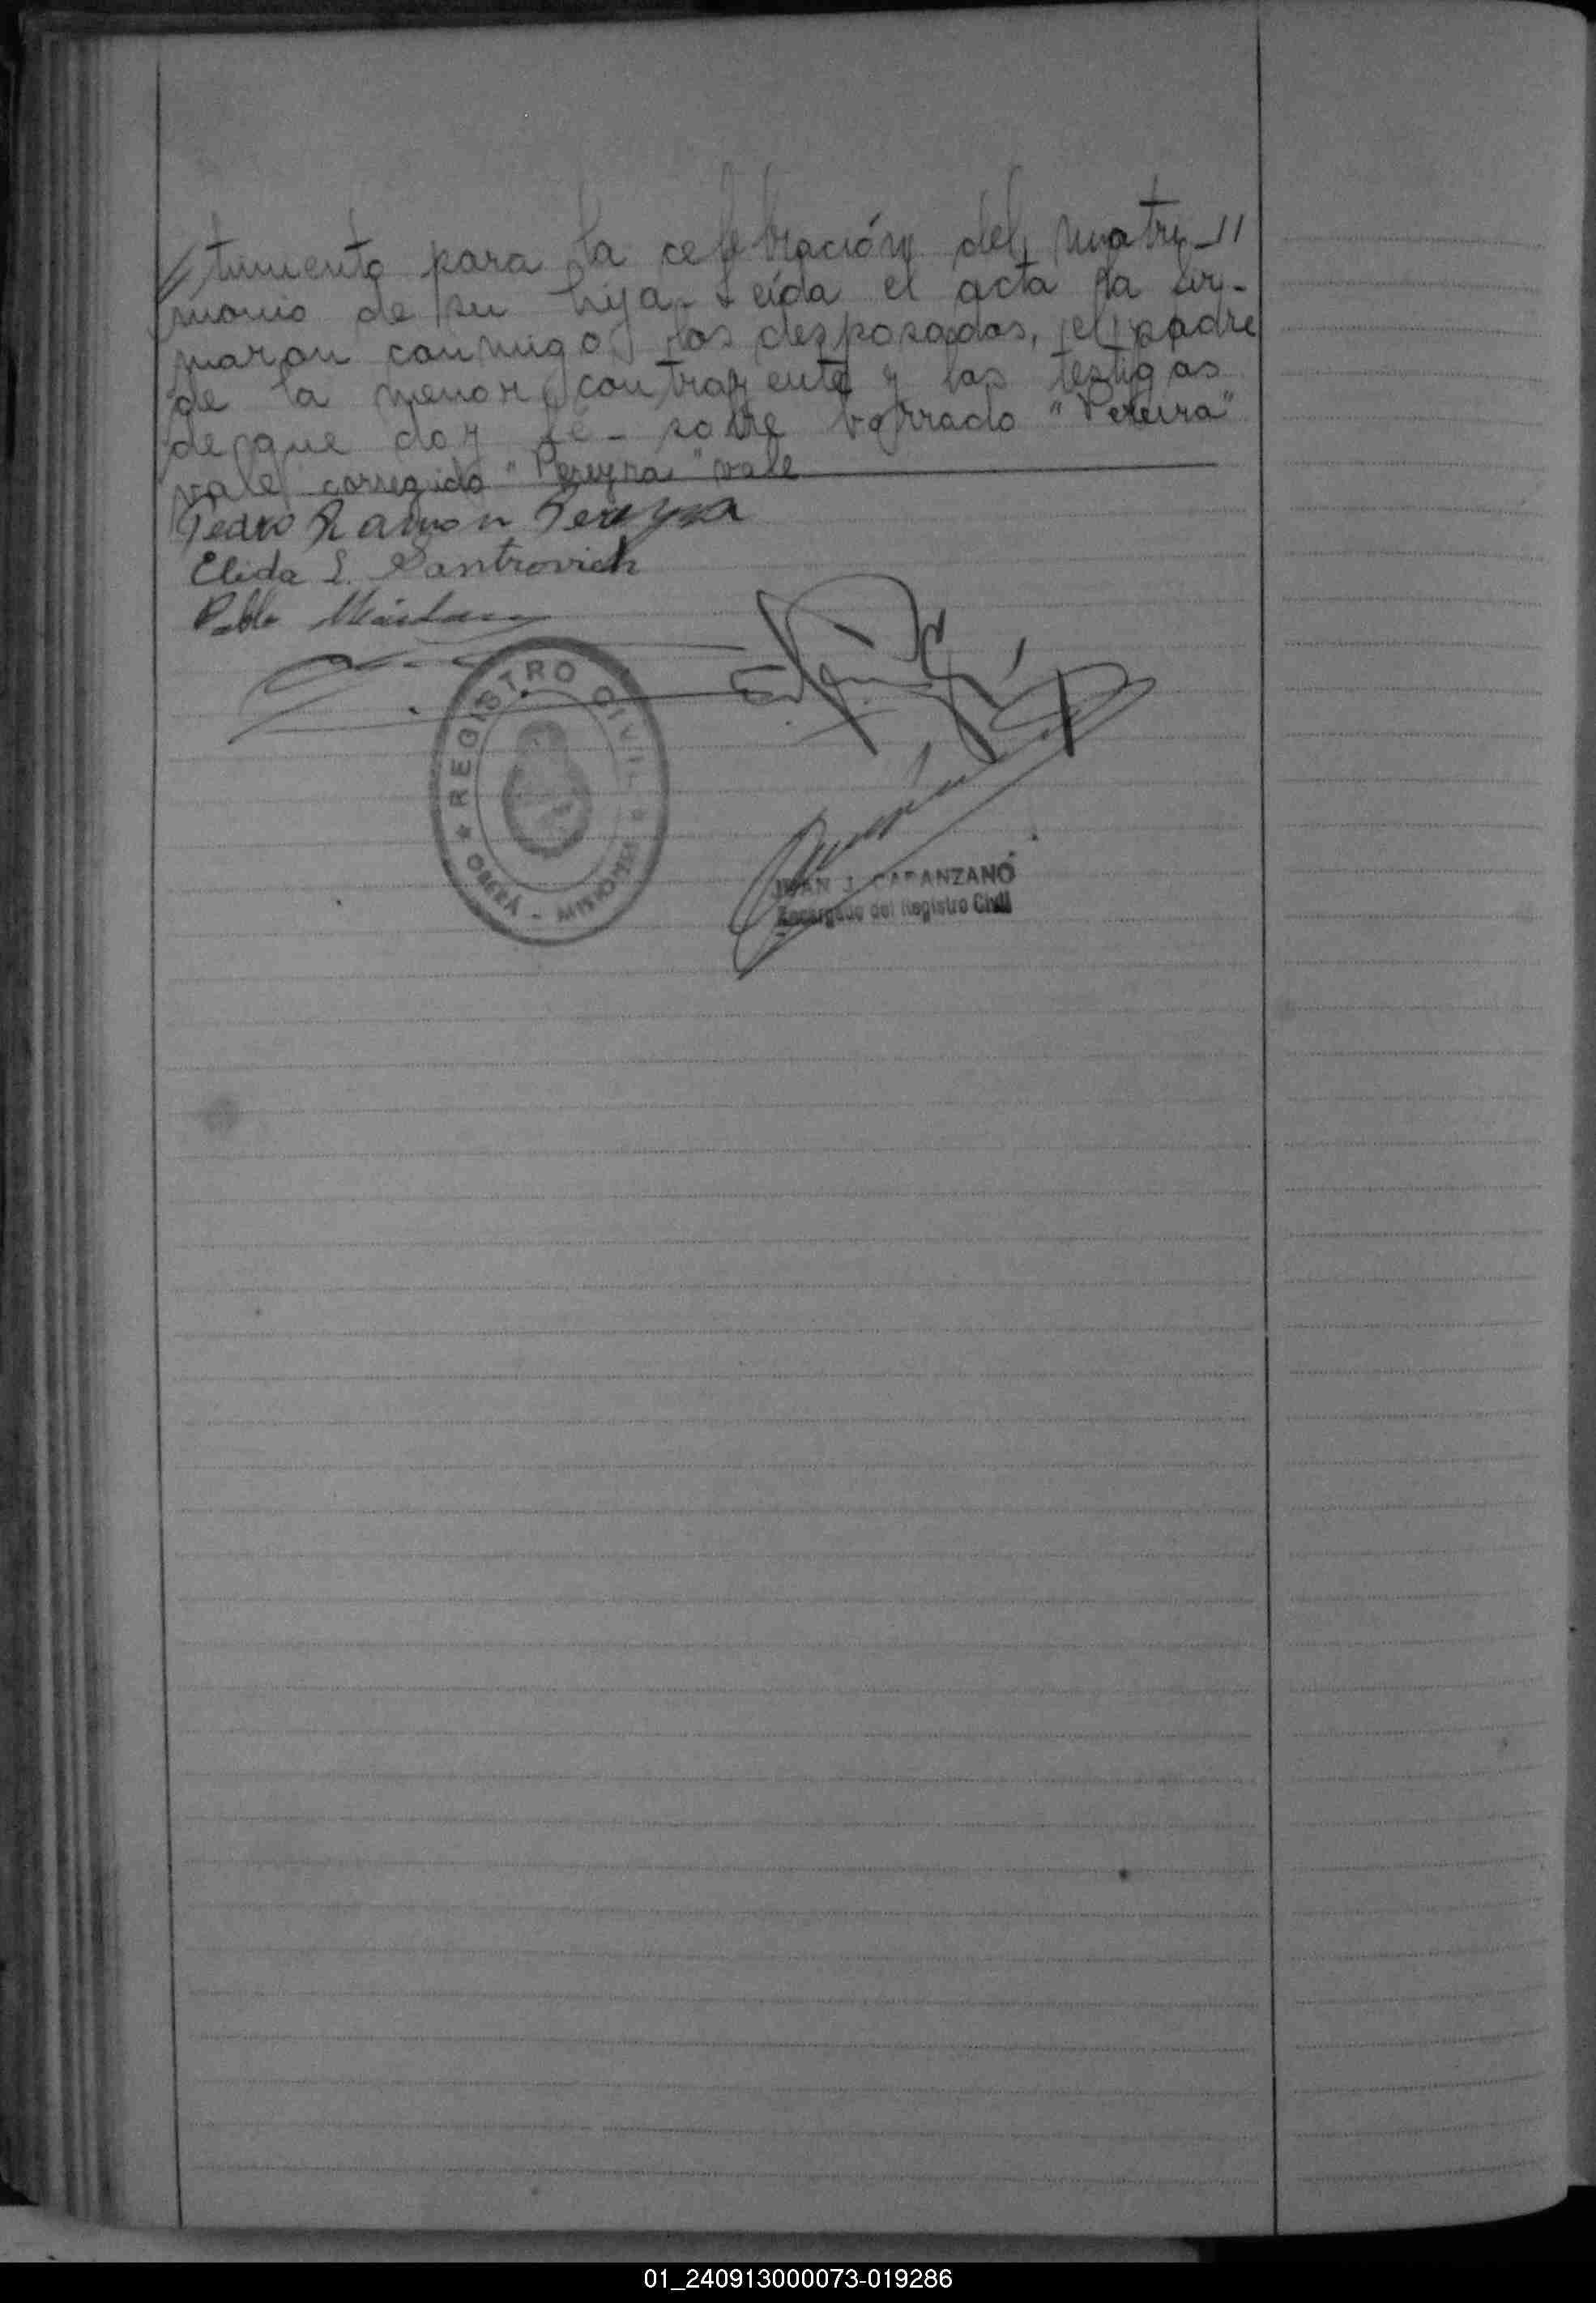 // timiento para la celebración del matri-//
monio de su hija. Leída el acta la fir-
maron conmigo, los desposados, el padre
de la menor contrayente y los testigos
de que doy fé - sobre borrado "Pereira"
vale corregido "Pereyra" vale
Pedro Ramón Pereyra
Elida L. Santrovich
Pablo
REGISTRO CIVIL
OBERÁ - MISIONES
JUAN J. CAPANZANO
Encargado del Registro Civil
01_240913000073-019286